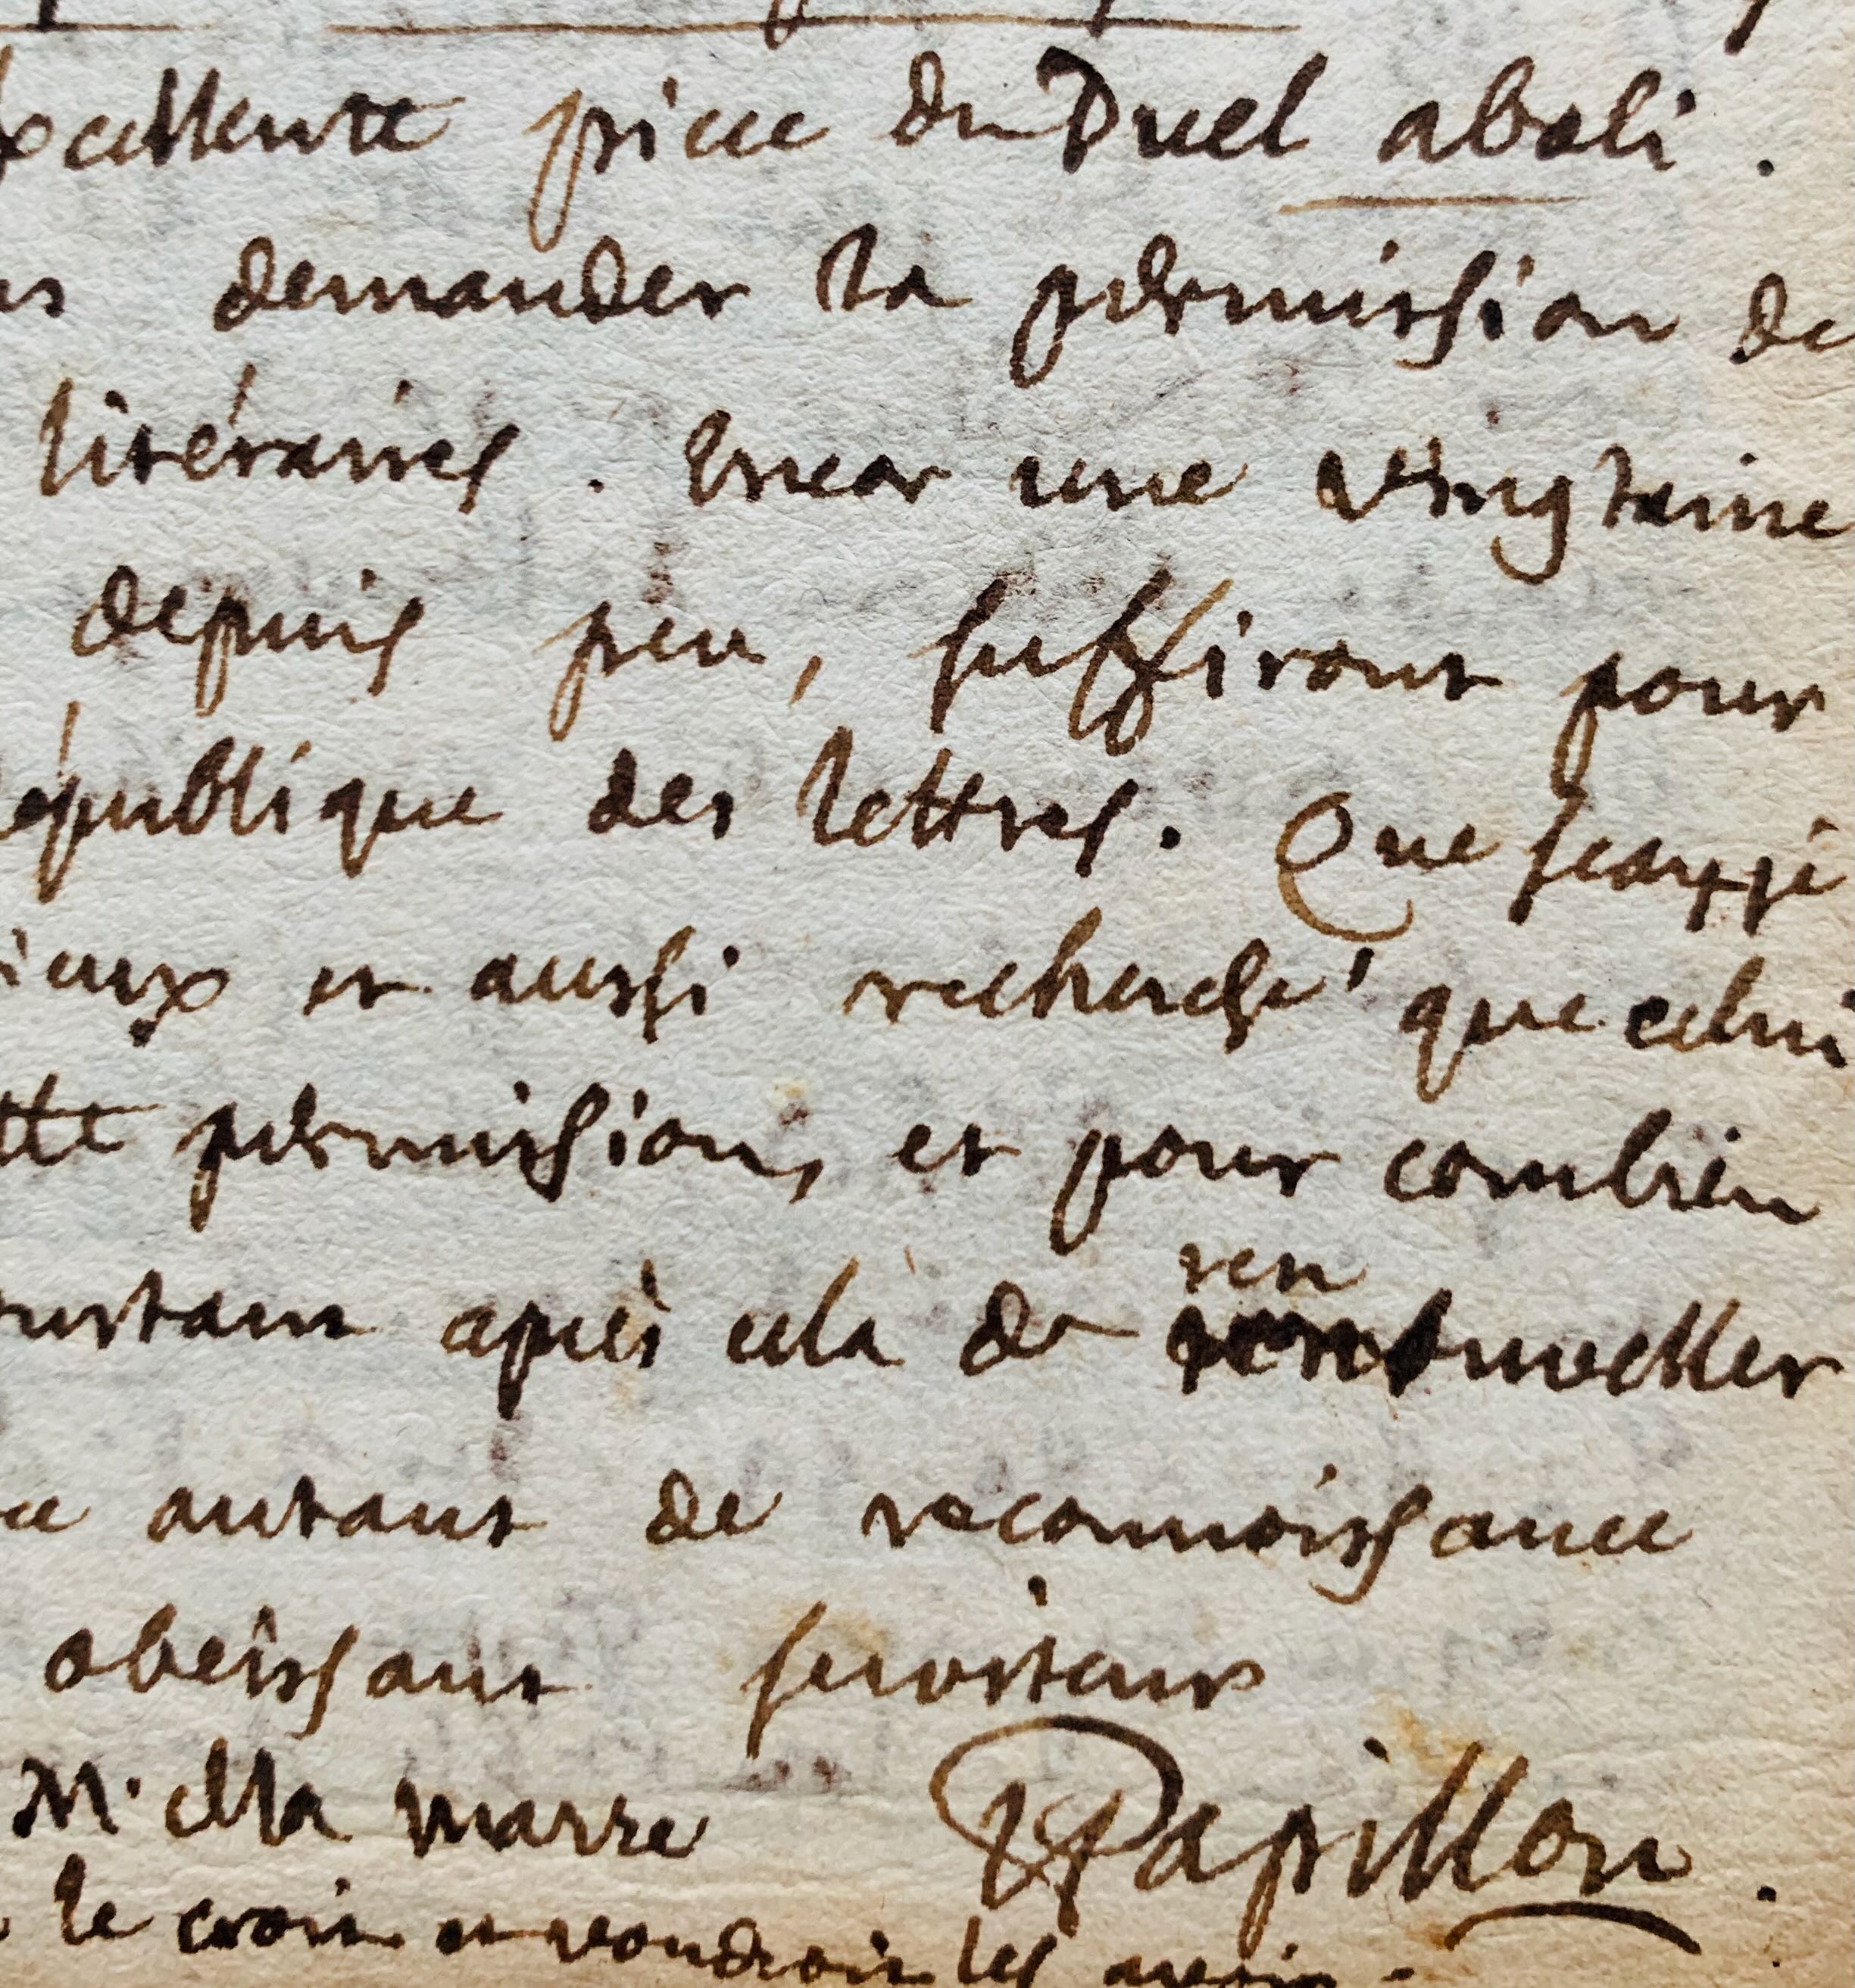 xcellente piece du Duel aboli.
demander la permission de
litéraires. Encor une vingtaine
depuis peu, suffiront pour
république des lettres. Que scay je
ieux et aussi recherché que celui
tte permission, et pour combien
apres cela de ren
nuveller
autant de reconnoissance
obeissant serviteur
M. De la marre Papillon.
le croit et voudroit les avoir.